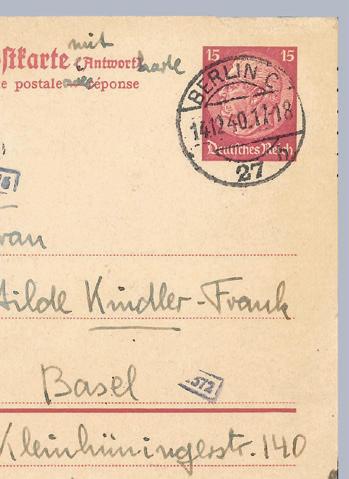 ostkarte mit (Antwort) karte
e postale réponse
15 15
Deutsches Reich
BERLIN C
14.12.40.17-18
27
rau
ilde Kindler-Frank
Basel
572
Kleinhüningerstr. 140